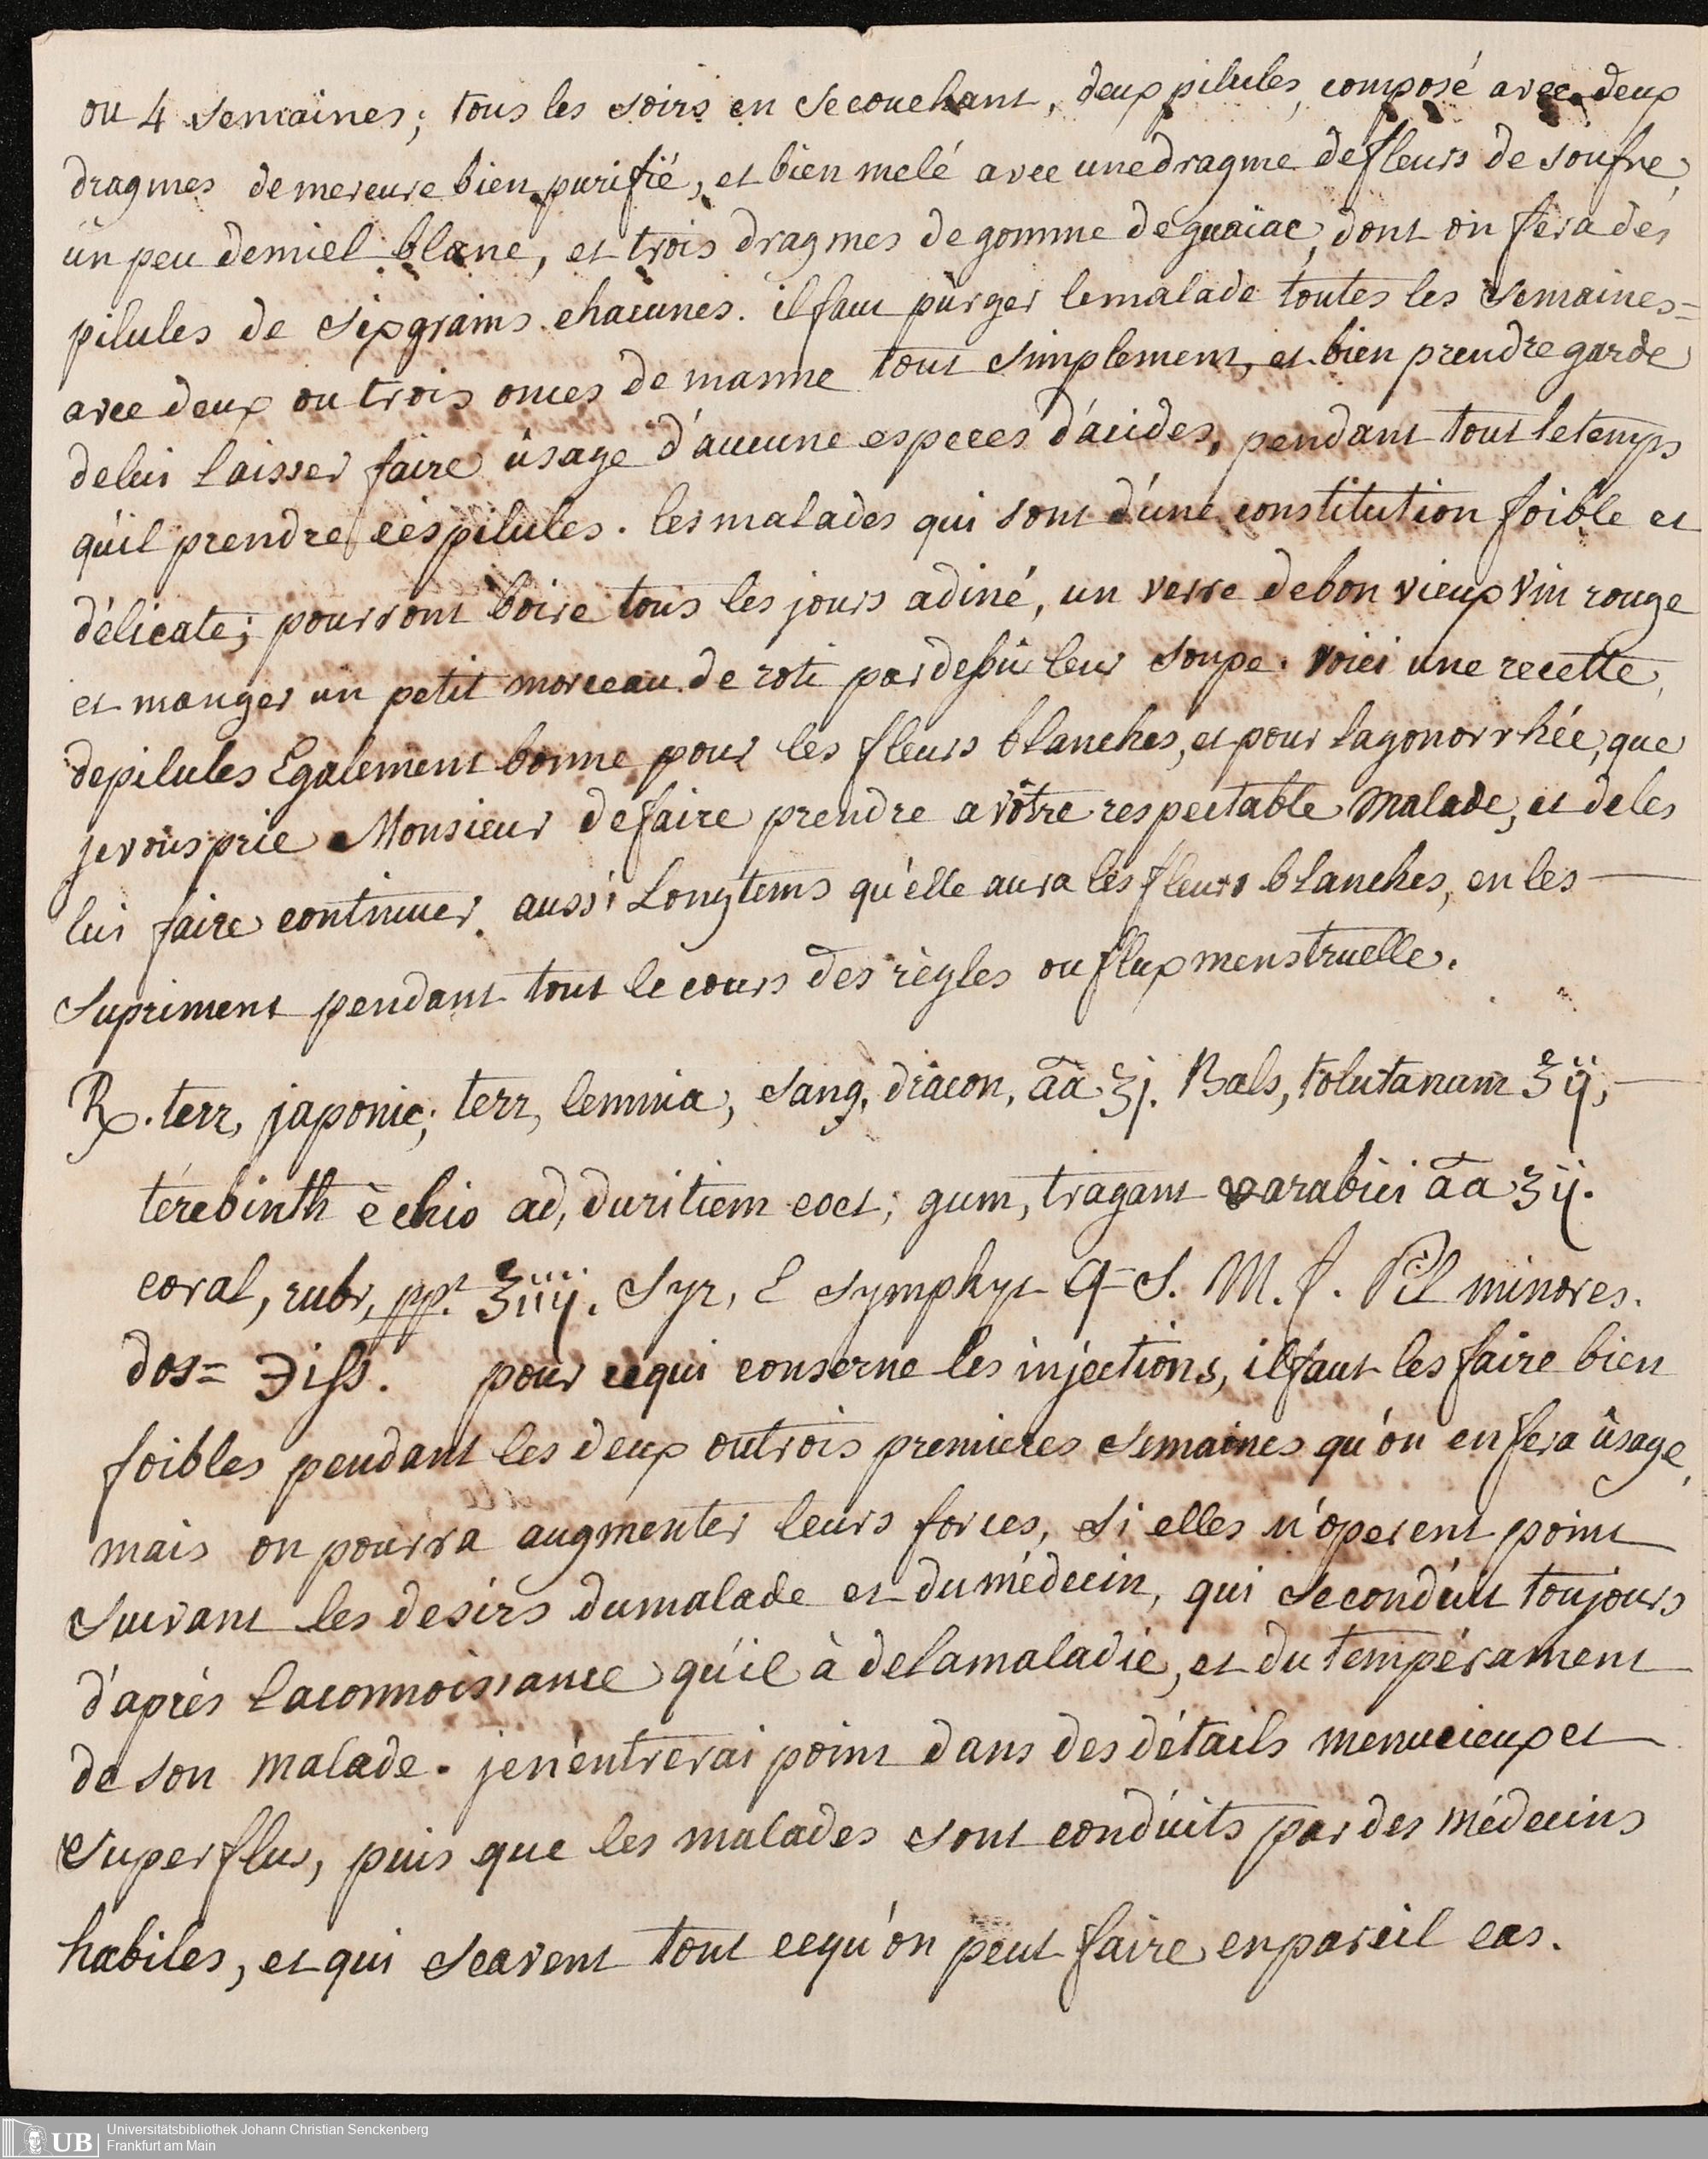 ou 4 semaines; tous les soirs en secouchant, deux pilules, composé avec deux
dragmes demercure bien purifié, et bien melé avec unedragme defleurs de soufre,
un peu demiel blanc, et trois dragmes degomme degaaïac, dont on fera des
pilules de sixgrains chacunes. il faut purger lemalade toutes les semaines=
avec deux ou trois onces de manne tout simplement, et bien prendre garde
delui laisser faire usage d'aucune especes d'acides, pendant tout letemps
qu'il prendre cespilules. les malades qui sont d'une constitution foible et
délicate; pourront boire tous les jours adiné, un verre debon vieux vin rouge
et manger un petit morceau de roti pardessu leur soupe. voici une recette,
depilules Egalement bonne pour les fleurs blanches, et pour lagonorrhée, que
jevous prie Monsieur defaire prendre avôtre respectable malade, et deles
lui faire continuer aussi Longtems qu'elle aura les fleurs blanches, en les —
supriment pendant tout lecours des règles ou flux menstruelle.
℞. terr, japonic; terr, lemnia, sang, dracon, āā ʒj. Bals, tolutanum ʒij, —
térebinth è chio ad, duritiem coct; gum, tragant arabici āā ʒij.
coral, rubr, ppt ʒiiij. Syr, E symphyt q-S. M. f. Pil minores.
dos= ℈iß. pour cequi conserne les injections, il faut les faire bien
foibles pendant les deux outrois premieres semaines qu'on en fera usage,
mais on pourra augmenter leurs forces, si elles n'operent point
suivant les desirs dumalade et dumédecin, qui seconduit toujours
d'après laconnoissance qu'il à delamaladie, et du tempérament
de son malade. jen'entrerai point dans des détails menucieux et
superflus, puis que les malades sont conduits pardes médecins
habiles, et qui scavent tout cequ'on peut faire enpareil cas.
UB Universitätsbibliothek Johann Christian Senckenberg
Frankfurt am Main